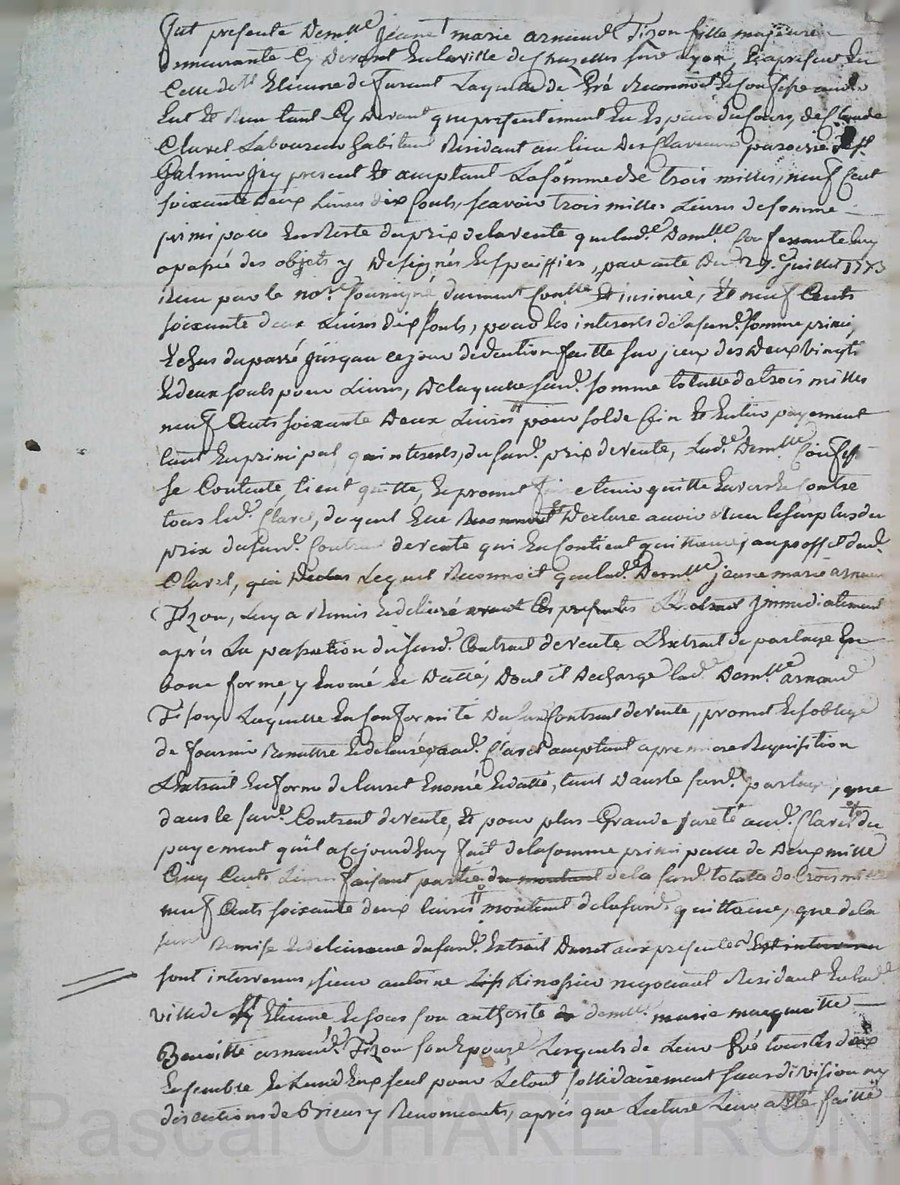 fut presente Demlle jeanne marie arnaud Tizon fille majeure
demeurante cy devant en la ville de Chazelles sur Lyon, et à present en
celle de St Etienne de furant Laquelle de gré Reconnoit et confesse avoir
Eut et Reçu tant cy devant que presentement En Espece du cours, de Claude
Claret Laboureur habitant Residant au lieu des Claveau paroisse de St
Galmier jcy present et acceptant La somme de trois milles, neuf Cent
soixante Deux Livres dix souls, scavoir trois milles Livres de somme
principalle En Reste du prix de la vente que lad.e Demlle Confessante luy
a passée des objets y designés et speciffiés, par acte du 29e juillet 1773
Reçu par le no.re soussigné, duement Conllé et insinué, et neuf Cents
soixante deux Livres dix souls, pour les interests de la sud. somme princip.
Echus du passé jusqu'au ce jour déduction faitte sur jceux des Deux vingti.
et deux souls pour Livres, De laquelle sud. somme totalle de trois milles
neuf Cents soixante Deux Livres pour solde fin et Entier payement
tant En principal, qu'interests, du sud. prix de vente, Lad.e Demlle Confess.
se Contente, tient quitte, et promet faire tenir quitte Envers et Contre
tous led. Claret, duquel Elle Reconnoit Declare avoir Reçu le surplus du
prix du sud. Contrat de vente qui En contient quittance, au proffit dud.
Claret, qui Declar Lequel Reconnoit que lad.e Demlle jeanne marie arnaud
Tizon, Luy a Remis et délivré avant Ces presentes L'Extrait jmmediatement
après La passation du sud. Contrat de vente L'Extrait de partage En
bonne forme, y Enoncé et Datté, Dont il Decharge lad.e Demlle arnaud
Tison, Laquelle En Conformité du sud Contrat de vente, promet et s'oblige
de fournir Remettre et délivrer aud. Claret acceptant à premiere Requisition
L'Extrait En forme de l'arret Enoncé et datté, tant Dans le sud. partage, que
dans le sud. Contrat de vente, Et pour plus Grande sureté aud. Claret du
payement qu'il a cejourd'huy fait de la somme principalle de Deux mille
Cinq Cents Livres faisant partie du montant de la sud. totalle de trois mille
neuf Cents soixante deux livres montant de la sud. quittance, que de la
sud. Remise et delivrance du sud. Extrait Darret aux presentes Est intervenu
sont intervenus, sieur antoine Lips Rinossier negociant Residant En lad.e
ville de St Etienne et sous son authorité de demlle marie marguitte
Benoitte arnaud Tizon son Epouze Lesquels de Leur Gré tous les deux
Ensemble et L'und Eux seul pour Le tout sollidairement sans division ny
discutions de Biens y Renonceants, après que Lecture Leur a Eté faitte
Pascal CHAREYRON